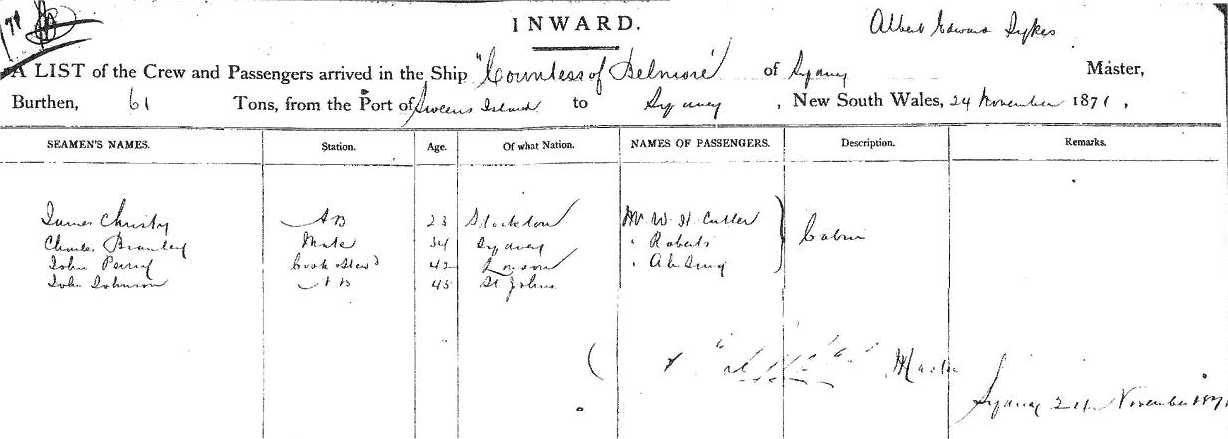 INWARD.
Albert Edward Sykes
A LIST of the Crew and Passengers arrived in the Ship "Countess of Belmore" of Sydney Master,
Burthen, 61 Tons, from the Port of Sweers Island to Sydney, New South Wales, 24 November 1871.
SEAMEN'S NAMES. Station. Age. Of what Nation. NAMES OF PASSENGERS. Description. Remarks.
James Christy AB 23 Stockton Mr W. H. Cutler
Charles Bramley Mate 34 Sydney " Roberts Cabin
John Perry Cook Stewd 42 London "
John Johnson AB 45 St Johns
Master
Sydney 24 November 1871